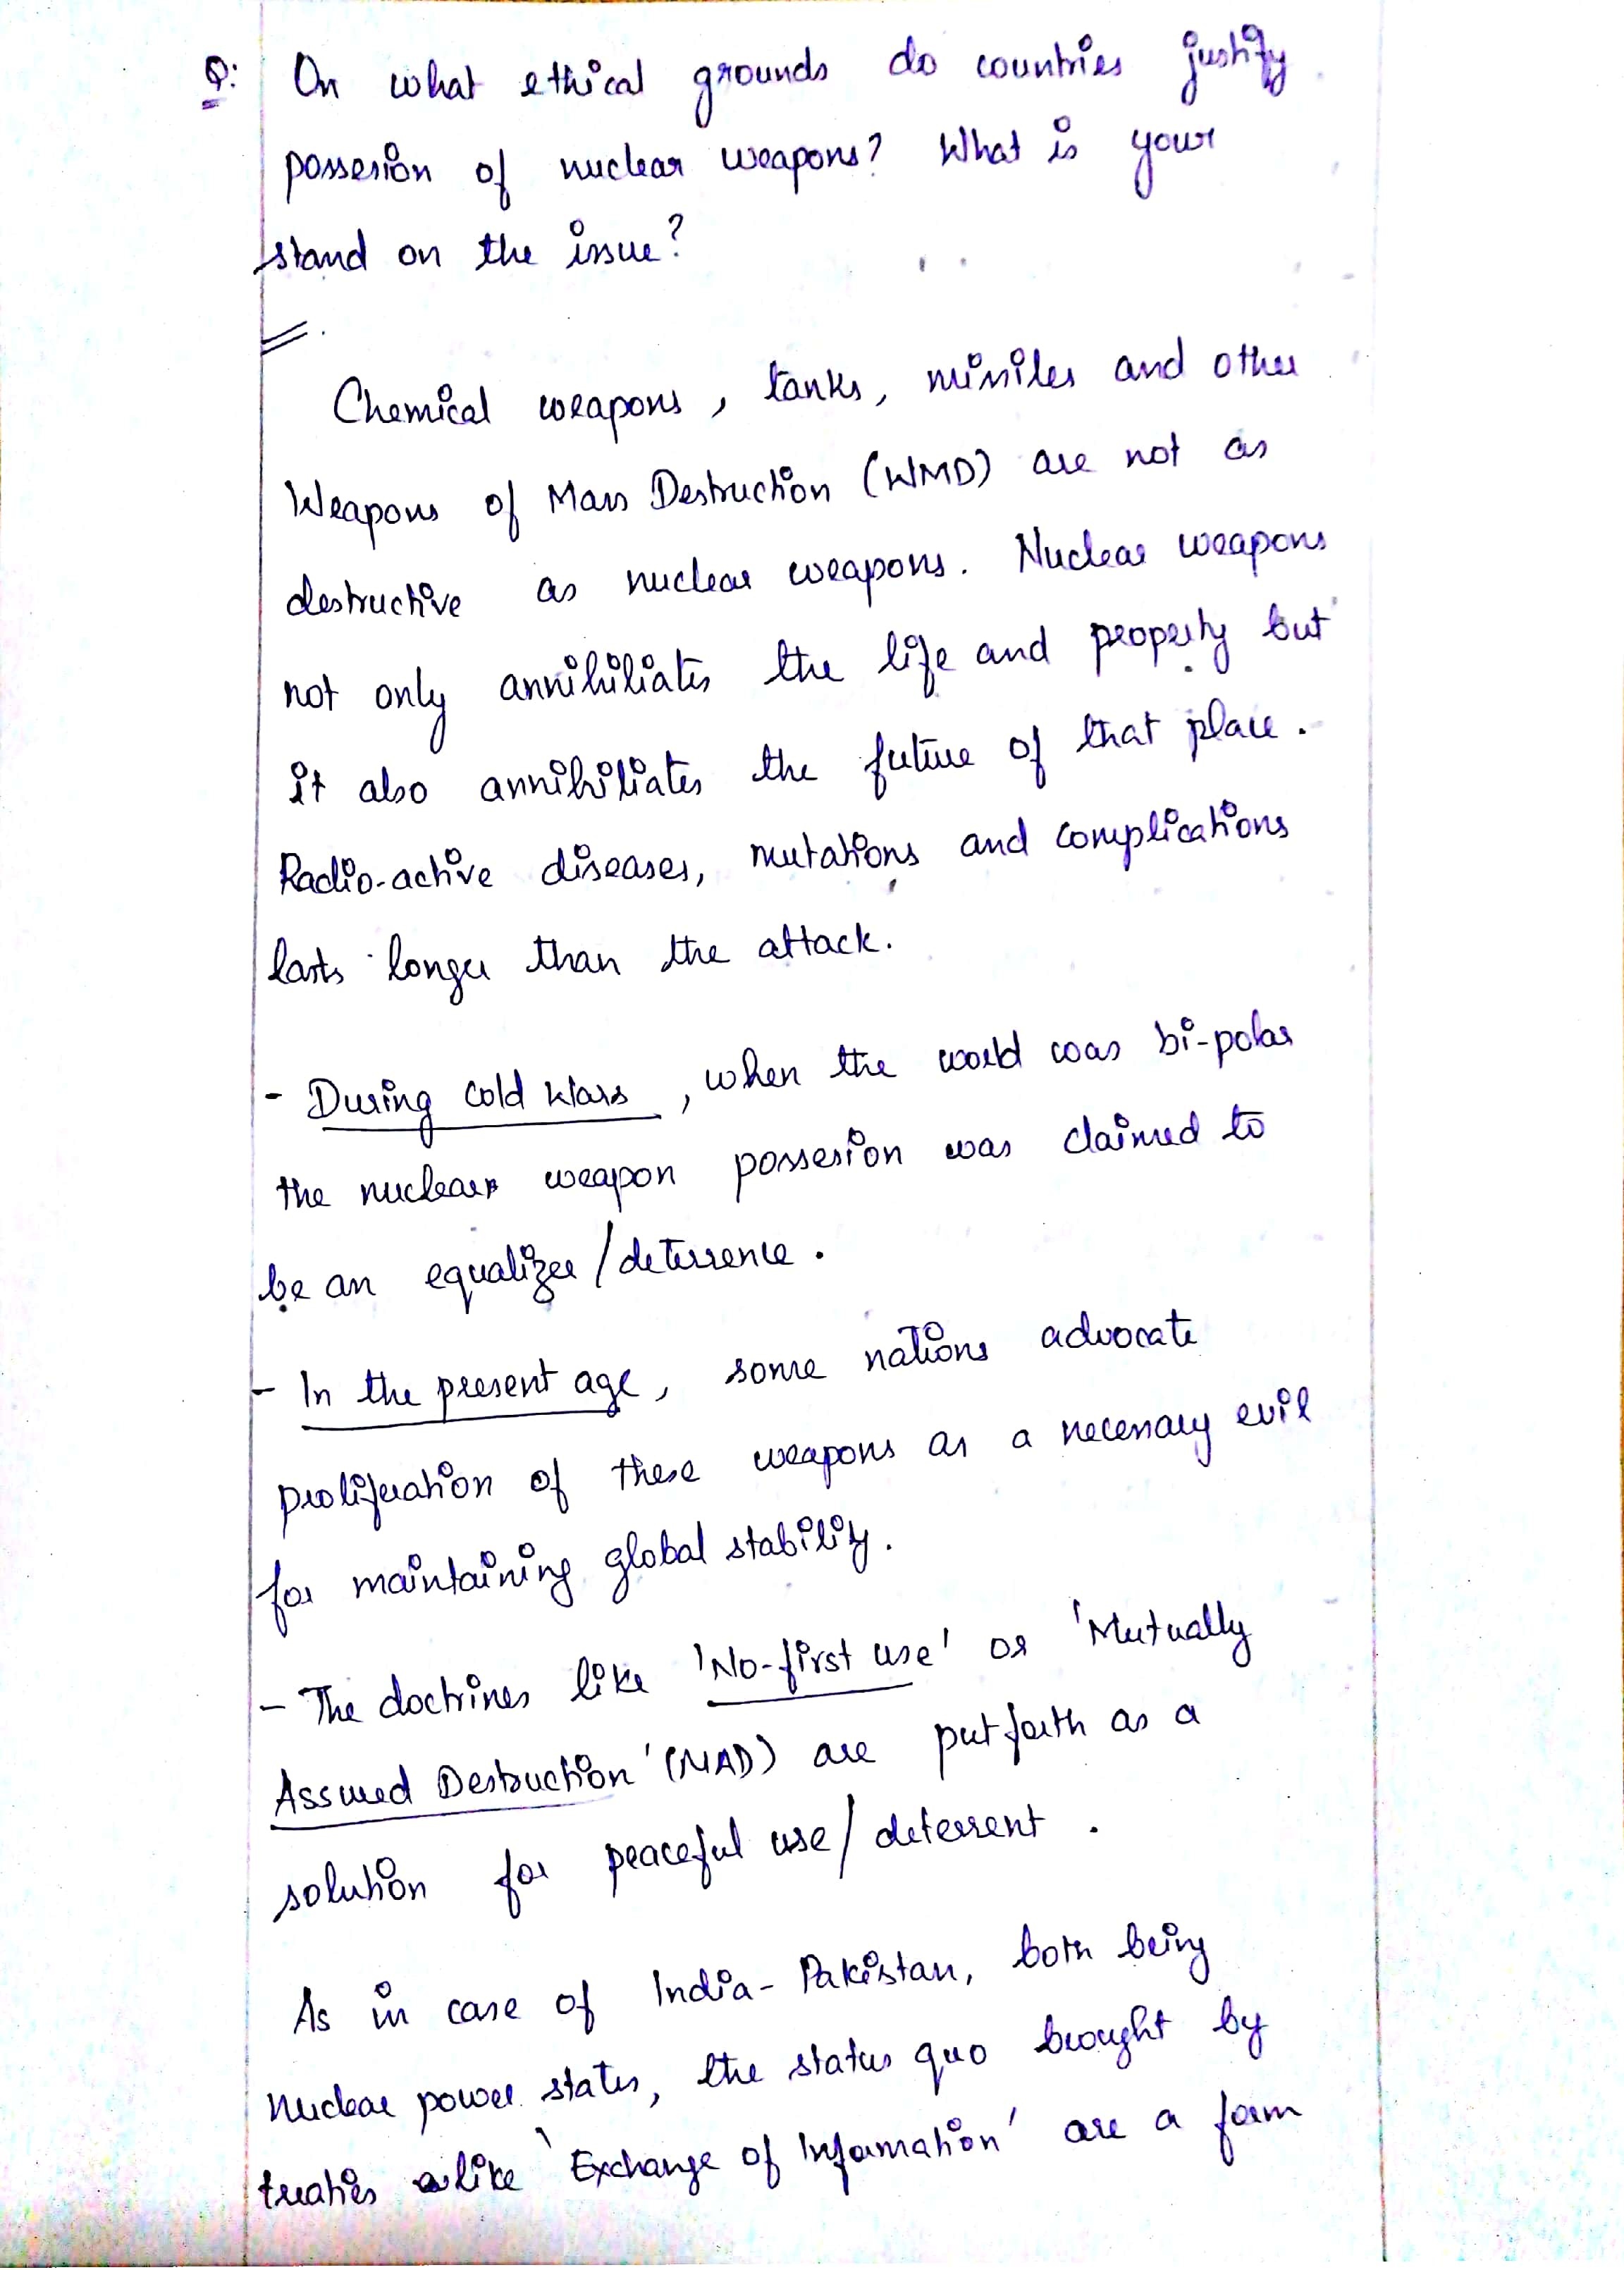 Q: On what ethical grounds do countries justify
possesion of nuclear weapons? What is your
stand on the issue?
Chemical weapons, tanks, missiles and other
Weapons of Mass Destruction (WMD) are not as
destructive as nuclear weapons. Nuclear weapons
not only annihiliates the life and property but
it also annihiliates the future of that place.
Radio-active diseases, mutations and complications
lasts longer than the attack.
- During cold wars, when the world was bi-polar
the nuclear weapon possesion was claimed to
be an equalizer/deterrence.
- In the present age, some nations advocate
proliferation of these weapons as a necessary evil
for maintaining global stability.
- The doctrines like 'No-first use' or 'Mutually
Assured Destruction' (MAD) are put forth as a
solution for peaceful use/deterrent.
As in case of India-Pakistan, both being
nuclear power states, the status quo brought by
treaties like 'Exchange of Information' are a form